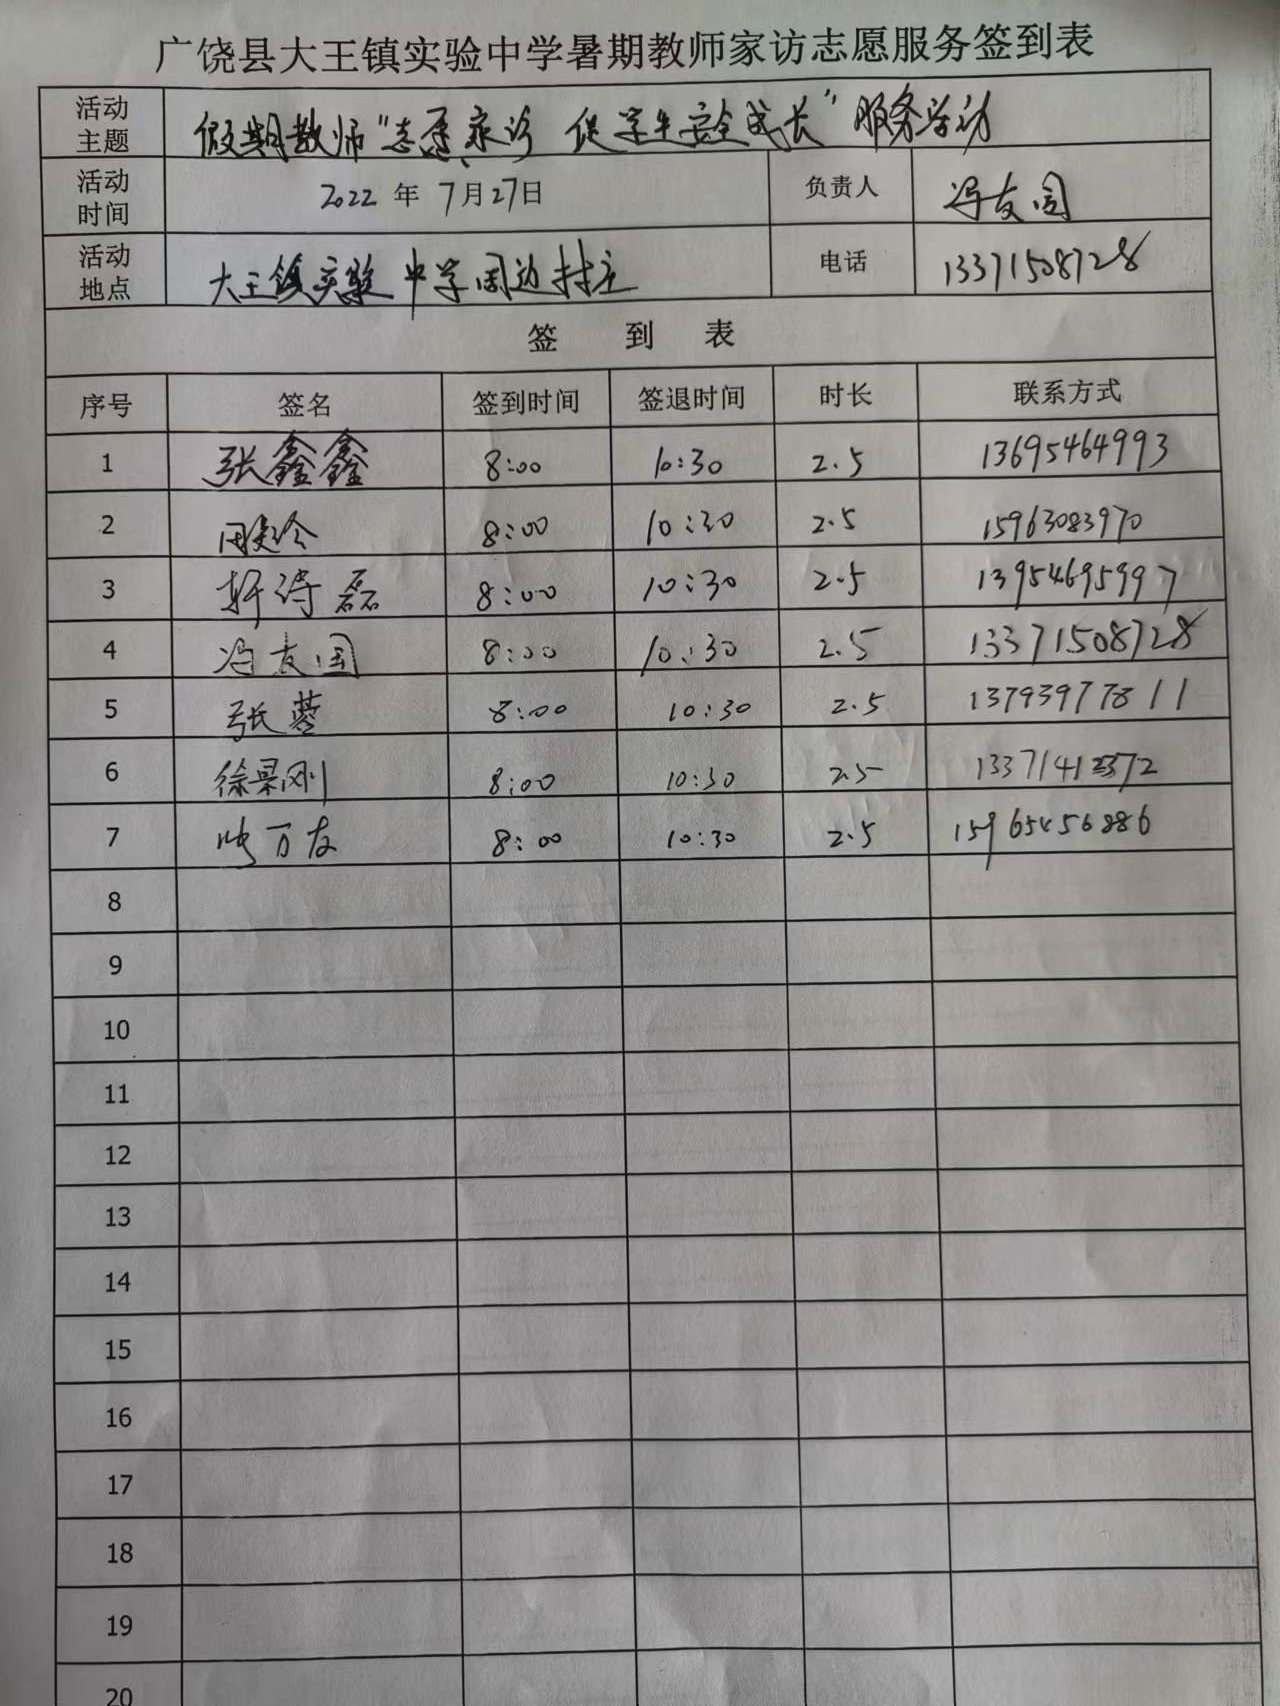 广饶县大王镇实验中学暑期教师家访志愿服务签到表
活动主题 假期教师“志愿家访 促学生安全成长”服务活动
活动时间 2022年7月27日 负责人 冯友国
活动地点 大王镇实验中学周边村庄 电话 13371508728
签 到 表
序号 签名 签到时间 签退时间 时长 联系方式
1 张鑫鑫 8:00 10:30 2.5 13695464993
2 8:00 10:30 2.5 15963083970
3 8:00 10:30 2.5 13954695997
4 冯友国 8:00 10:30 2.5 13371508728
5 张蓉 8:00 10:30 2.5 13793977811
6 徐景刚 8:00 10:30 2.5
7 8:00 10:30 2.5 15965456886
8
9
10
11
12
13
14
15
16
17
18
19
20